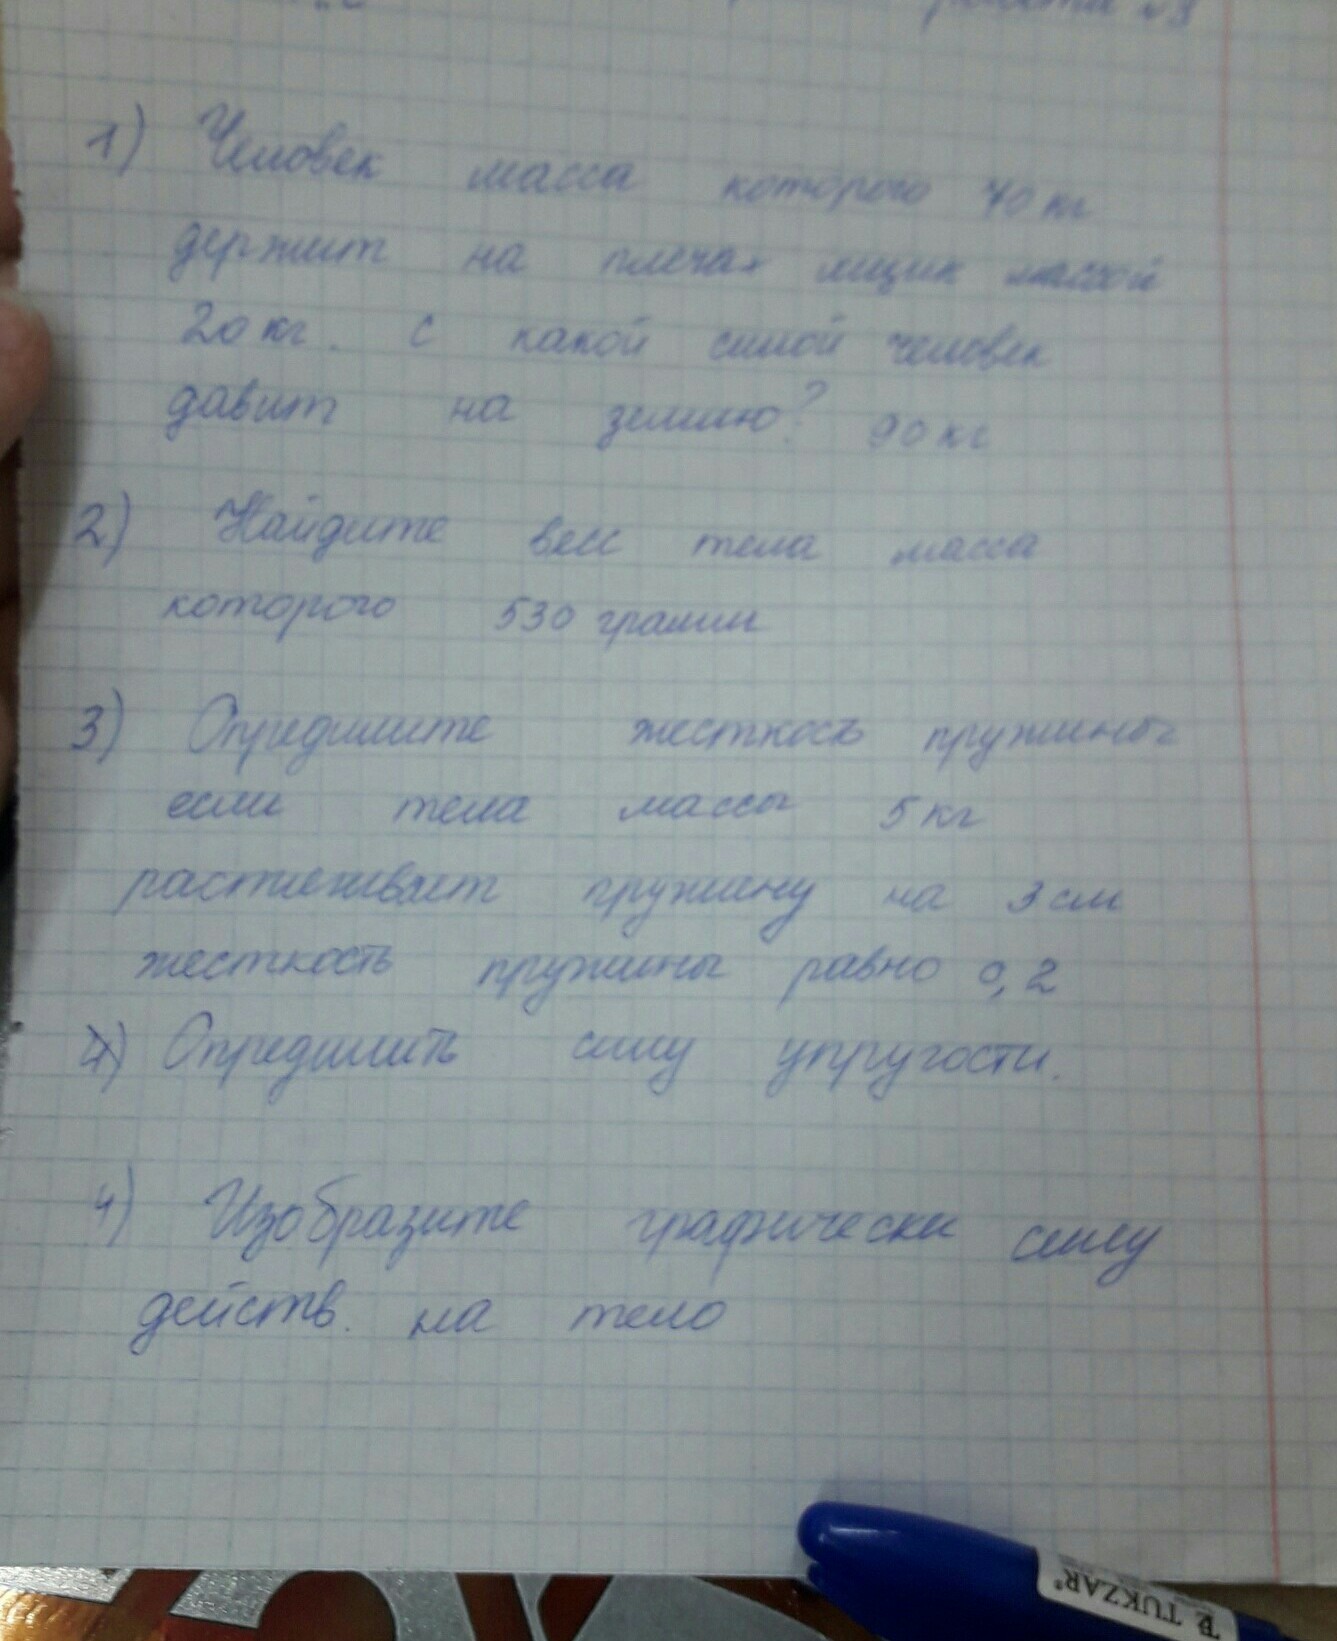 работа №3
1) Человек масса которого 70 кг
держит на плечах ящик массой
20 кг. С какой силой человек
давит на землю? 90 кг
2) Найдите весс тела масса
которого 530 грамм
3) Опредилите жесткость пружины
если тела массы 5 кг
растиеживает пружину на 3 см
жесткость пружины равно 0,2
Опредилить силу упругости.
4) Изобразите графически силу
действ. на тело
TUKZAR®